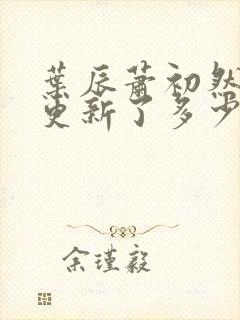 葉辰蕭初然
更新了多少
余瑾毅